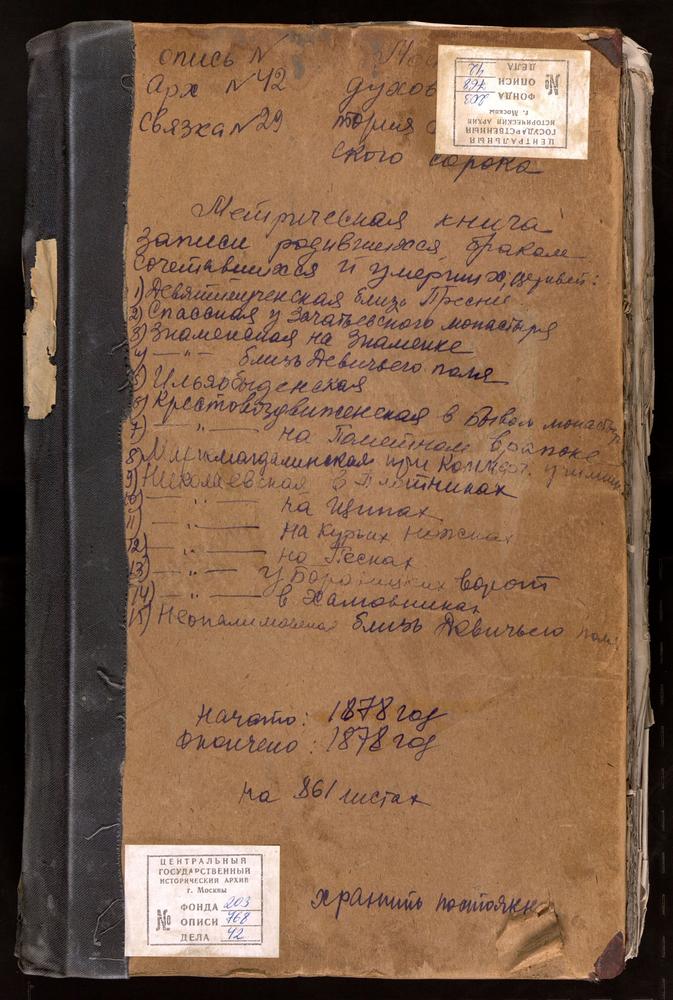 опись N
Арх N 42
духов
связка N 29
тория
ского сорока
ЦЕНТРАЛЬНЫЙ
ГОСУДАРСТВЕННЫЙ
ИСТОРИЧЕСКИЙ АРХИВ
г. Москвы
ФОНДА 203
№ ОПИСИ 768
ДЕЛА 42
Метрическая книга
записи родившихся браком
сочетавшихся и умерших, церквей:
1) Девятинученская близь Пресни
2) Спасская у Зачатьевского монастыря
3) Знаменская на Знаменке
4) — " — близь Девичьего поля
5) Ильяобыденская
6) Крестовоздвиженская в бывом монастыр
7) — " — на
8) при училищ
9) Николаевская в Плотниках
10) — " — на Щипах
11) — " — на Курьих ножках
12) — " — на Песках
13) — " — у Боровицких ворот
14) — " — в Хамовниках
15) Неопалимовская близь Девичьего поля
начато: 1878 год
Окончено: 1878 год
на 861 листах
хранить постоянно
ЦЕНТРАЛЬНЫЙ
ГОСУДАРСТВЕННЫЙ
ИСТОРИЧЕСКИЙ АРХИВ
г. Москвы
ФОНДА 203
№ ОПИСИ 768
ДЕЛА 42